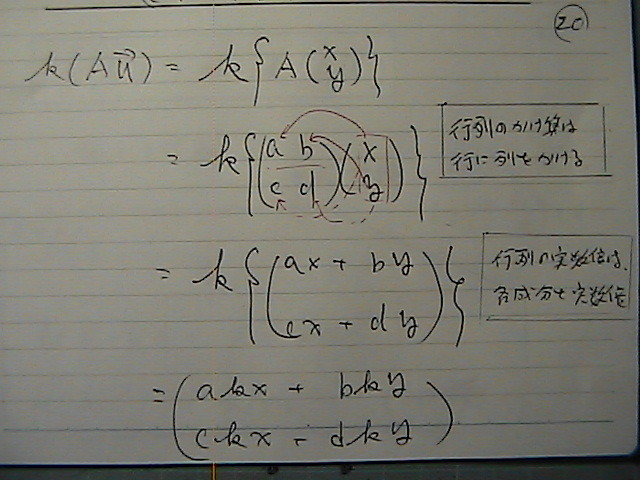 20
k(Au⃗) = k{A(x y)}
= k{(a b c d)(x y)}
行列のかけ算は
行に列をかける
= k{(ax + by
cx + dy)}
行列の実数倍は、
各成分を実数倍
= (akx + bky
ckx + dky)